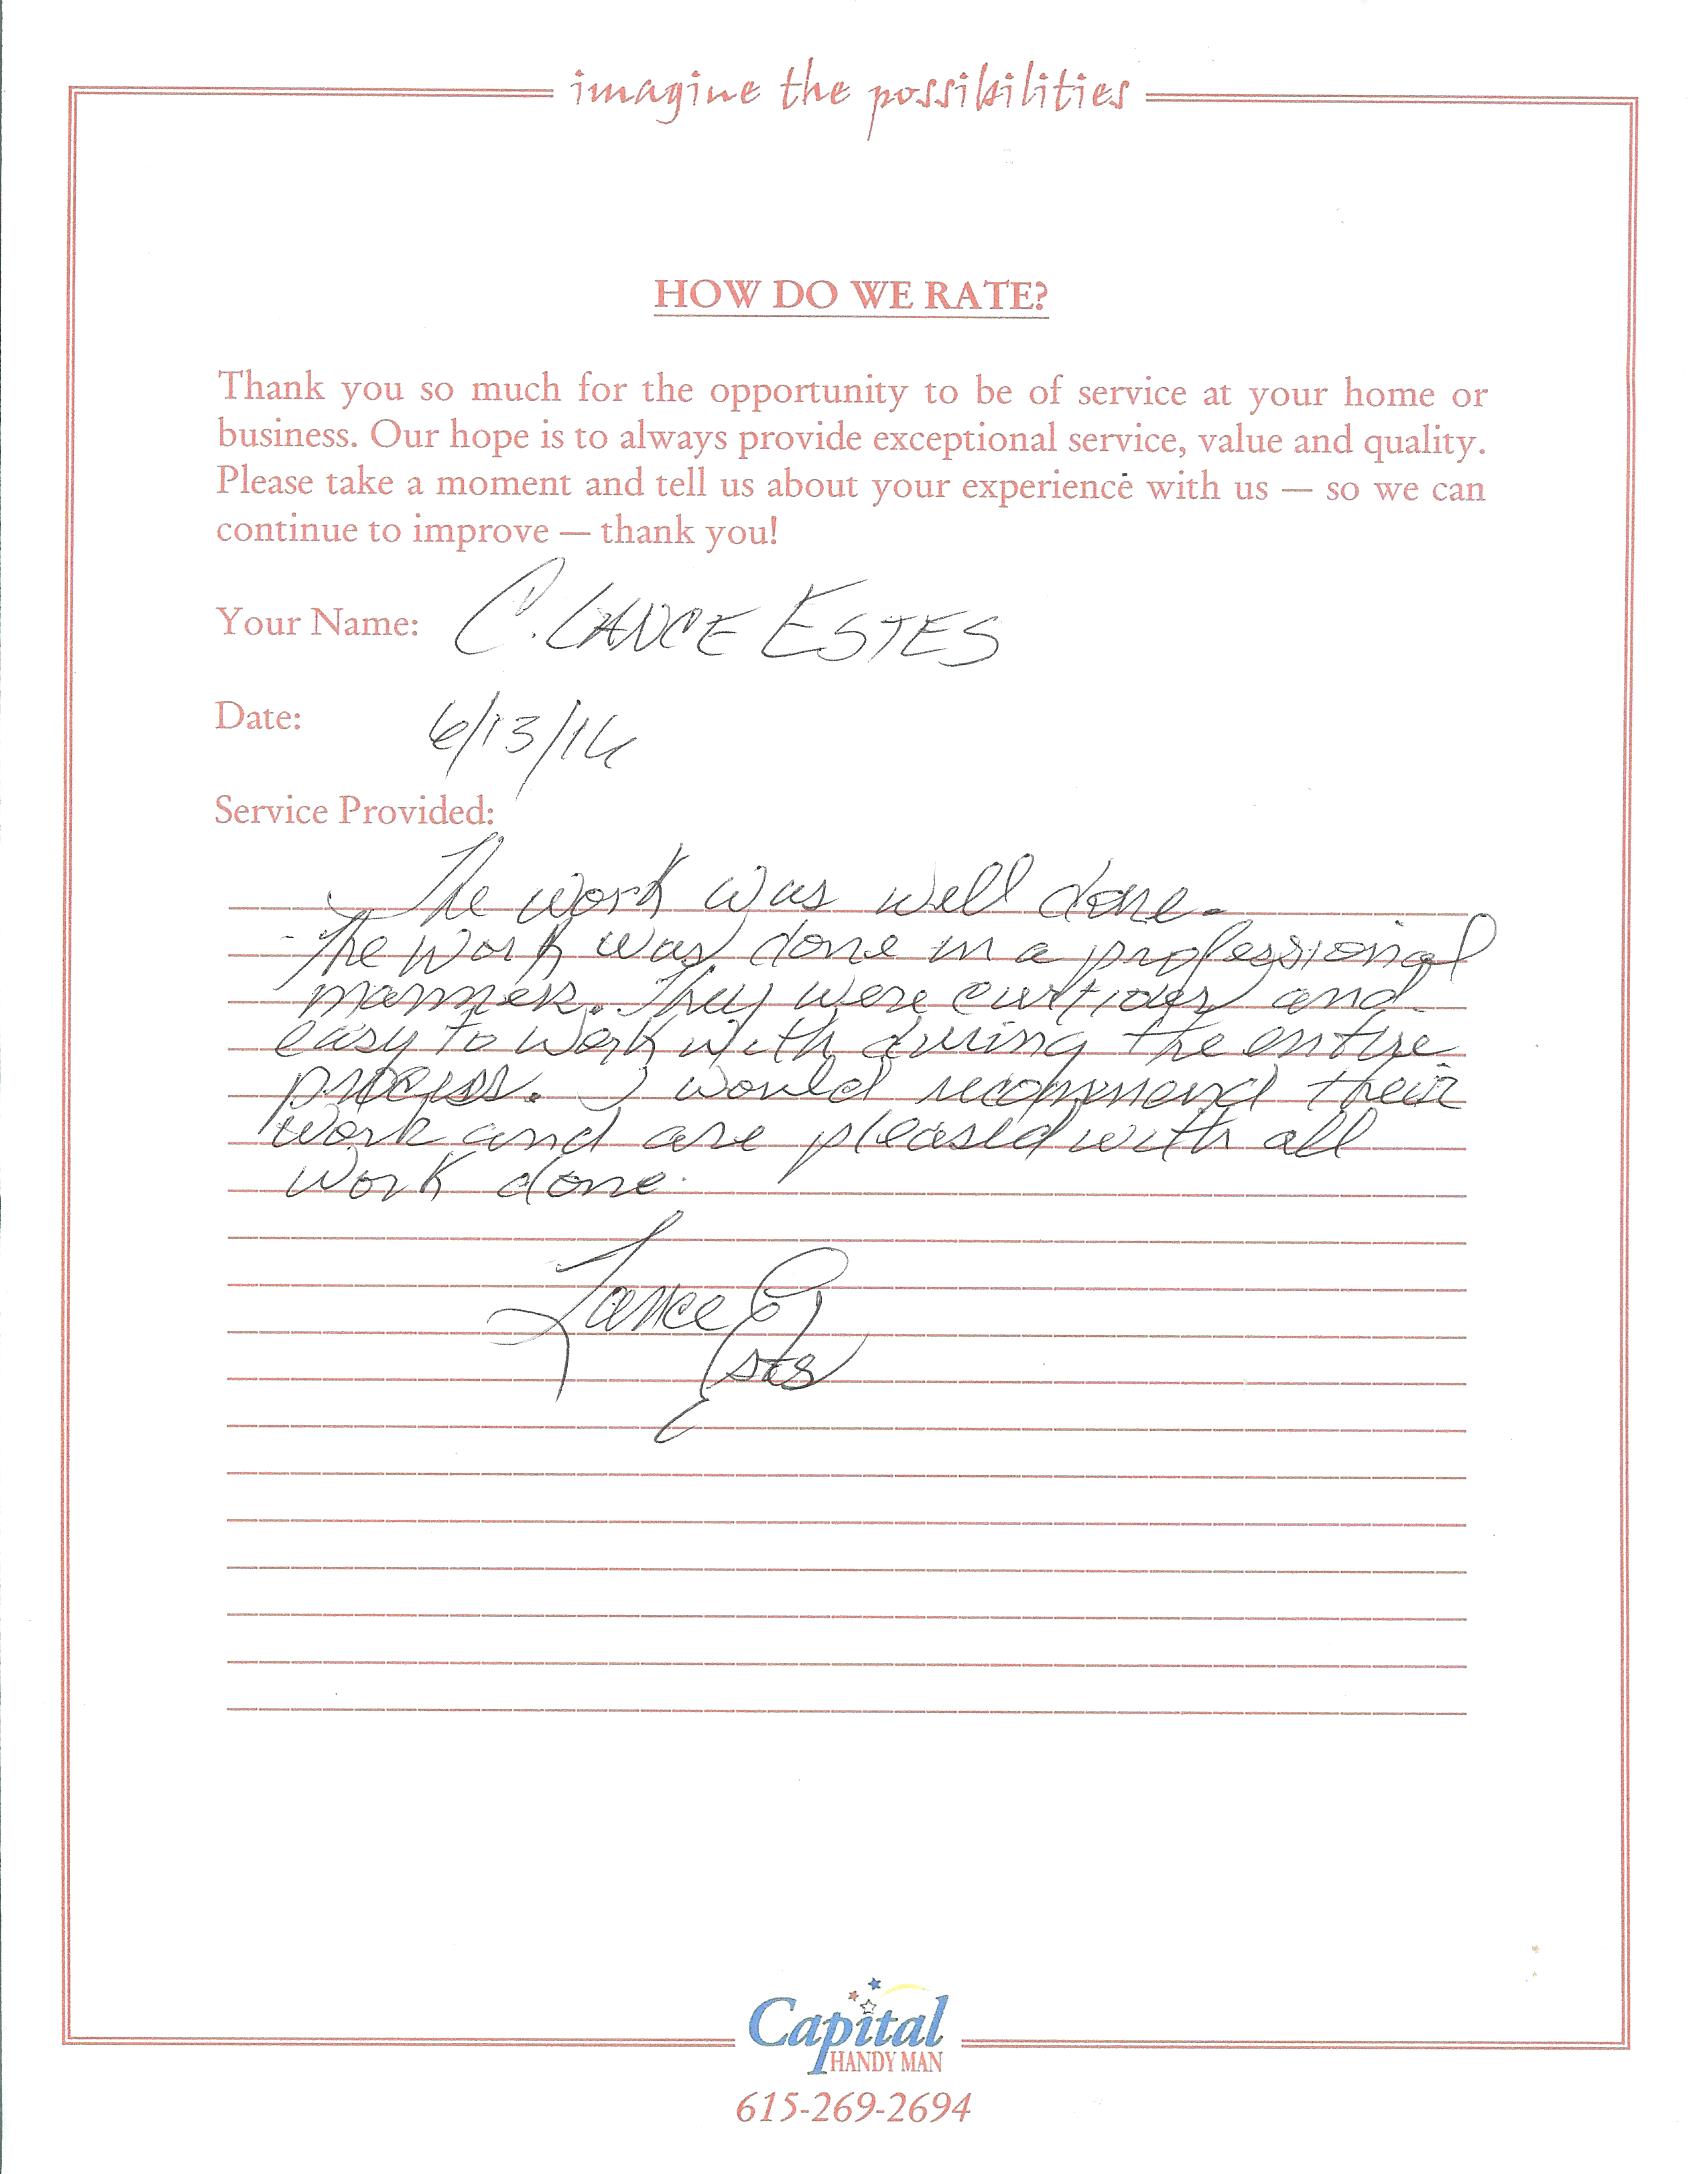 imagine the possibilities
HOW DO WE RATE?
Thank you so much for the opportunity to be of service at your home or
business. Our hope is to always provide exceptional service, value and quality.
Please take a moment and tell us about your experience with us — so we can
continue to improve — thank you!
Your Name: C. LANCE ESTES
Date: 6/13/16
Service Provided:
The work was well done.
The work was done in a professional
manner. They were curtious and
easy to work with during the entire
process. I would recommend their
work and are pleased with all
work done.
Lance E
Estes
Capital
HANDY MAN
615-269-2694